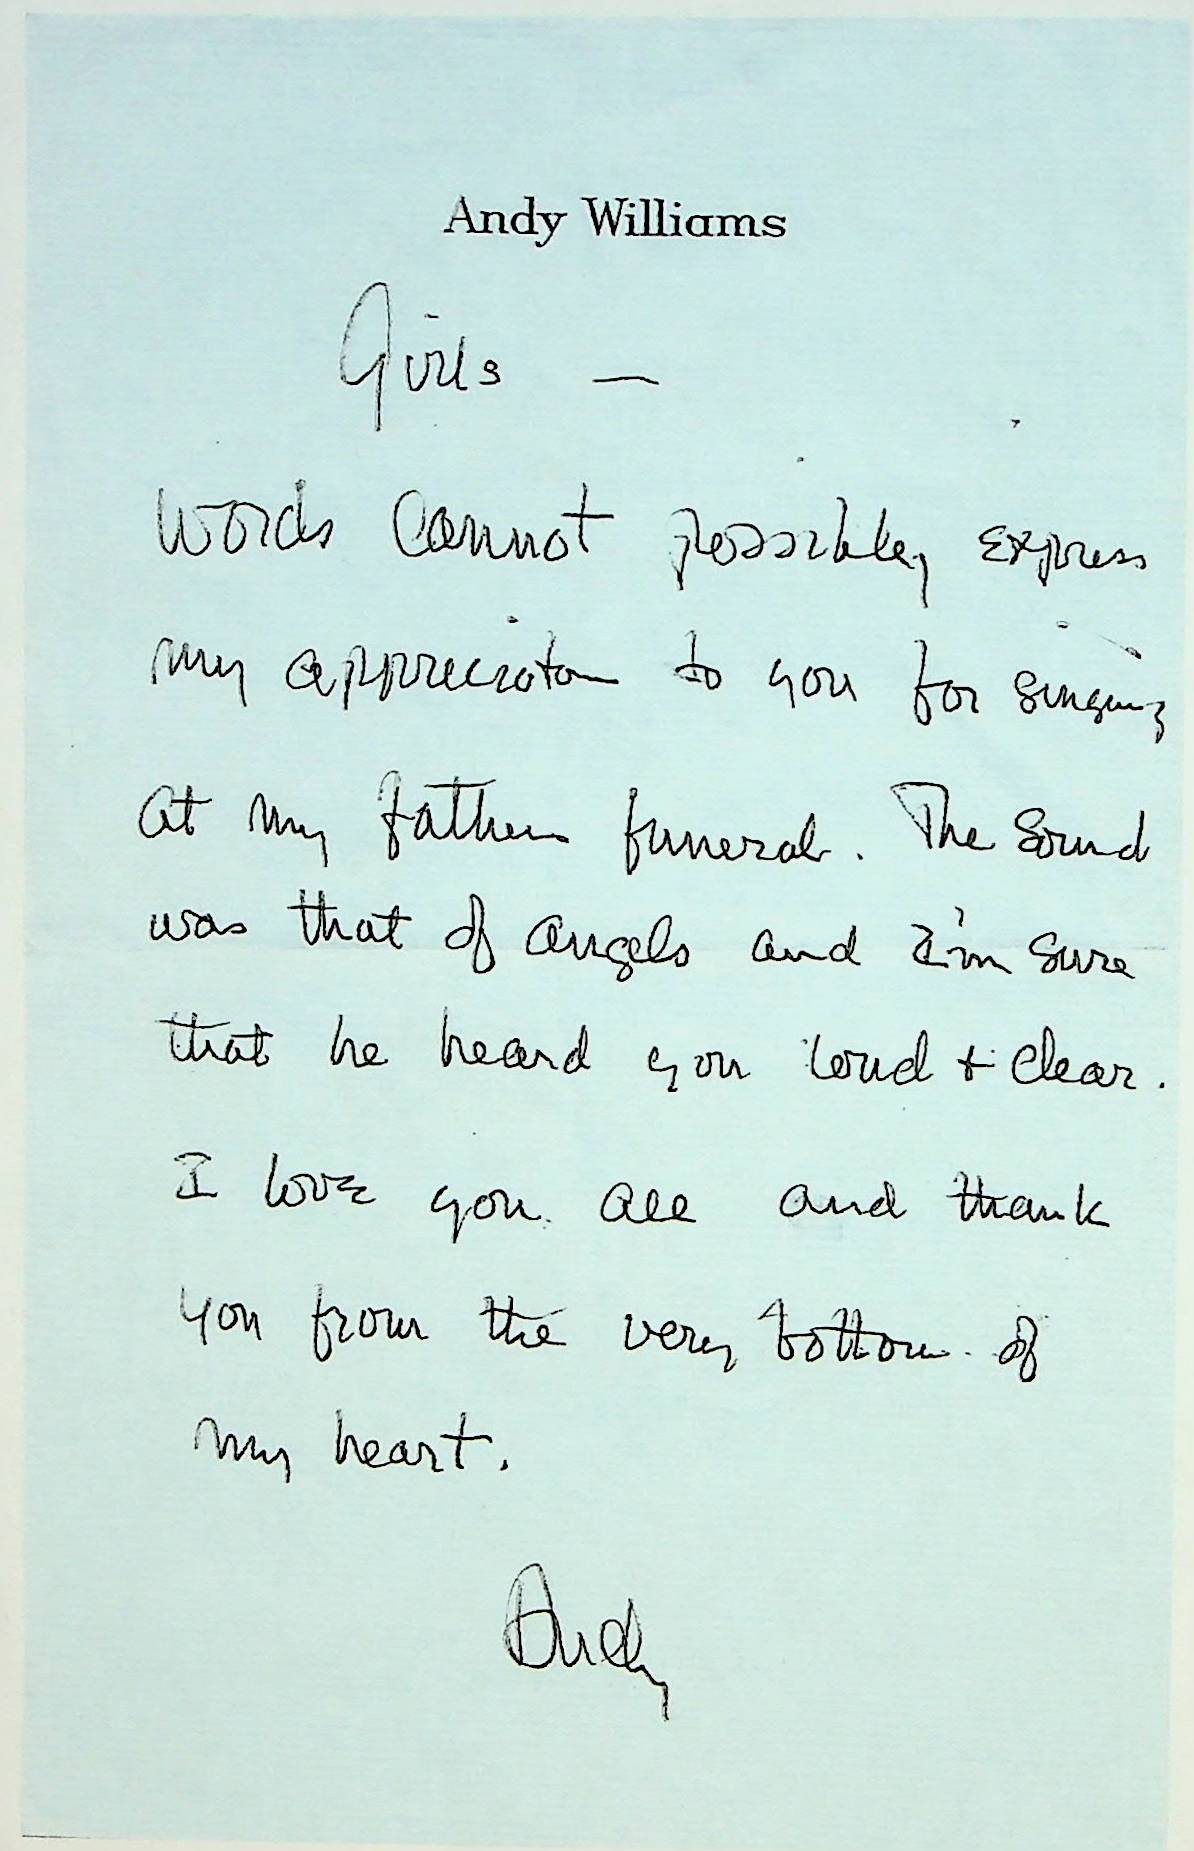 Andy Williams
Girls —
Words cannot possibly express
my appreciation to you for singing
at my fathers funeral. The sound
was that of angels and I'm sure
that he heard you loud + clear.
I love you all and thank
you from the very bottom of
my heart.
Andy